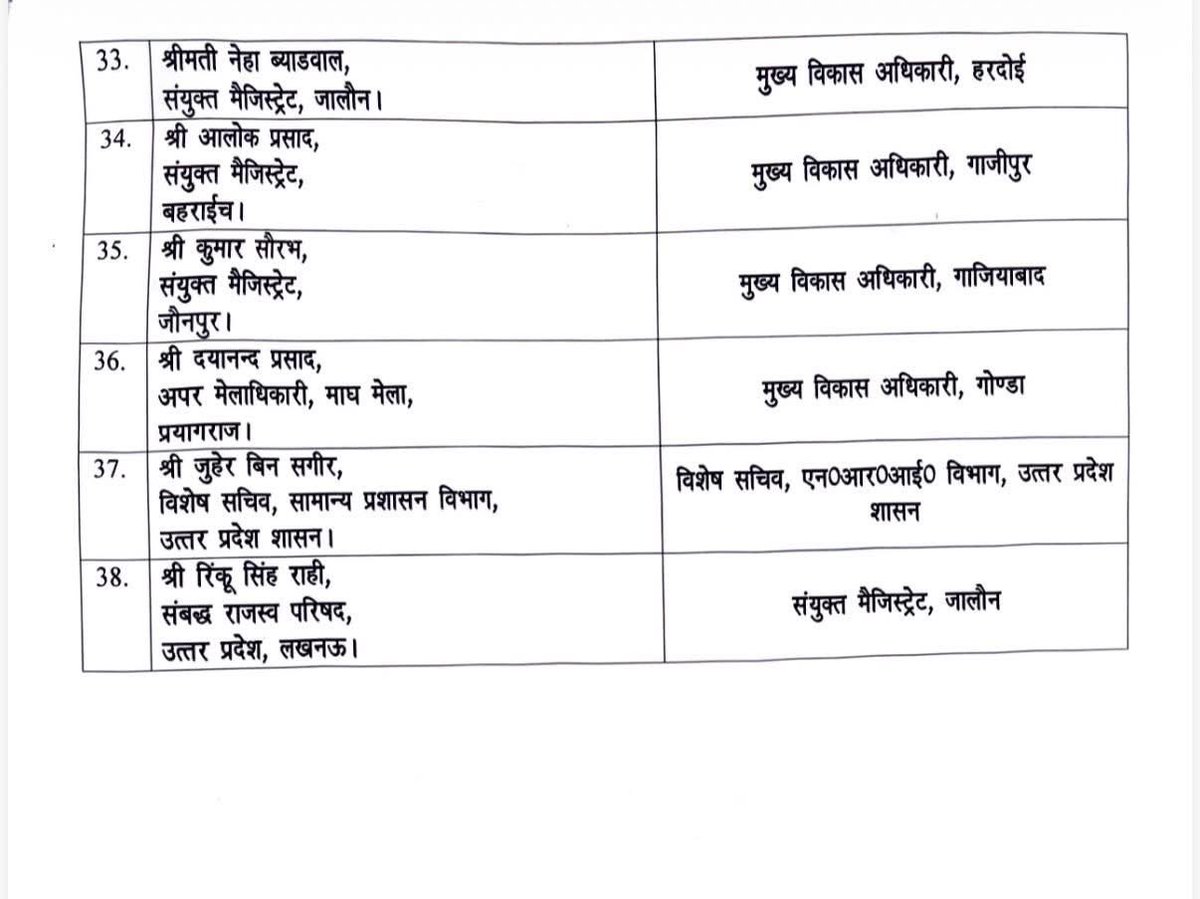 33.
श्रीमती नेहा ब्याडवाल,
संयुक्त मैजिस्ट्रेट, जालौन।
मुख्य विकास अधिकारी, हरदोई
34.
श्री आलोक प्रसाद,
संयुक्त मैजिस्ट्रेट,
बहराईच।
मुख्य विकास अधिकारी, गाजीपुर
35.
श्री कुमार सौरभ,
संयुक्त मैजिस्ट्रेट,
जौनपुर।
मुख्य विकास अधिकारी, गाजियाबाद
36.
श्री दयानन्द प्रसाद,
अपर मेलाधिकारी, माघ मेला,
प्रयागराज।
मुख्य विकास अधिकारी, गोण्डा
37.
श्री जुहेर बिन सगीर,
विशेष सचिव, सामान्य प्रशासन विभाग,
उत्तर प्रदेश शासन।
विशेष सचिव, एन0आर0आई0 विभाग, उत्तर प्रदेश
शासन
38.
श्री रिंकू सिंह राही,
संबद्ध राजस्व परिषद,
उत्तर प्रदेश, लखनऊ।
संयुक्त मैजिस्ट्रेट, जालौन